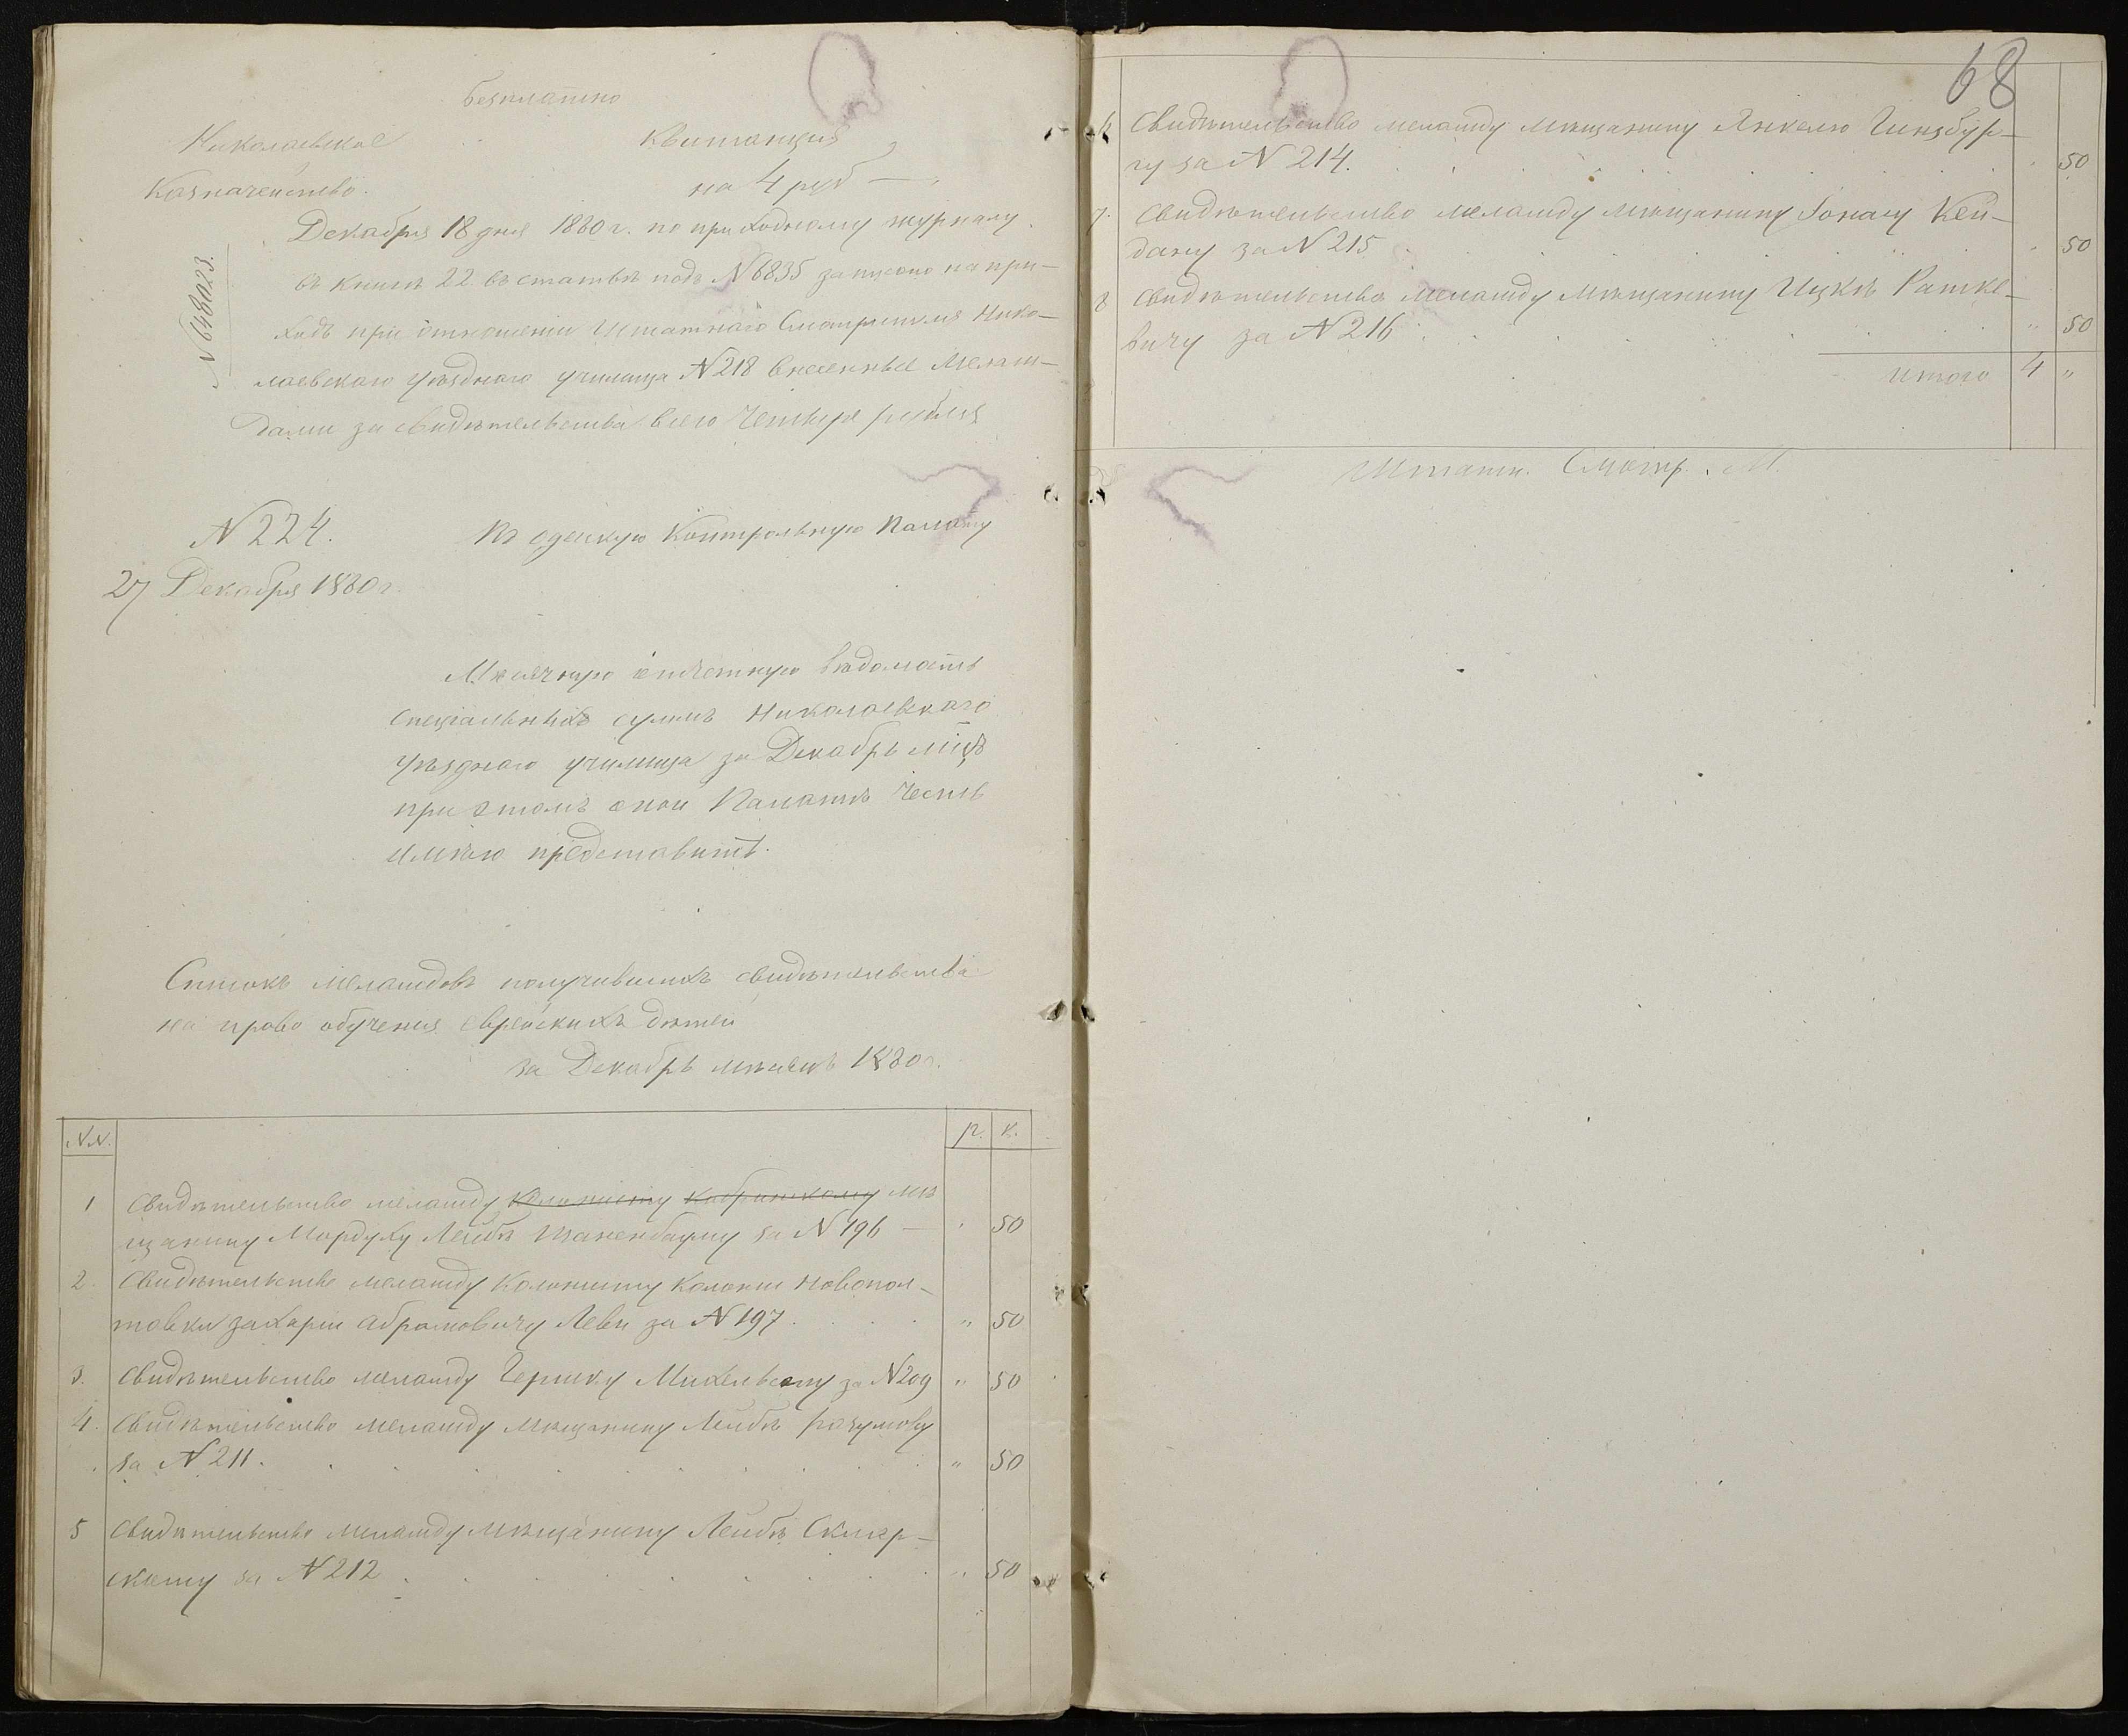 безплатно
Николаевское
Казначейство.
Квитанция
на 4 руб —„
№ 648023.
Декабря 18 дня 1880 г. по приходному журналу
въ книгѣ 22 въ статьѣ подъ № 6835 записано на при-
ходъ при отношеніи Штатнаго Смотрителя Нико-
лаевскаго уѣзднаго училища № 218 внесенные Мелам-
дами за свидѣтельства всего Четыре рубля
№ 224.
27 Декабря 1880 г.
Въ одескую Контрольную Палату
Мѣсячную отчетную вѣдомость
спеціальныхъ суммъ Николаевскаго
уѣзднаго училища за Декабрь мцъ
при этомъ оной Палатѣ честь
имѣю представить.
Списокъ меламдовъ получившихъ свидѣтельства
на право обученія еврейскихъ дѣтей
за Декабрь мѣсяцъ 1880 г.
N.N. р. к.
1 Свидѣтельство меламду Колонисту Кабринскому мѣ
щанину Мордуху Лейбѣ Таненбауму за № 196 — „ 50
2. Свидѣтельство меламду Колонисту Колоніи Новопол-
товки Захаріи Абрамовичу Леви за № 197 . . . . „ 50
3. Свидѣтельство меламду Гершку Михельсону за № 209 „ 50
4. Свидѣтельство меламду Мѣщанину Лейбѣ Разумову
за № 211. „ 50
5 Свидѣтельство меламду Мѣщанину Лейбѣ Скляр-
скому за № 212 . „ 50
68
6 Свидѣтельство меламду Мѣщанину Янкелю Гинзбур-
гу за № 214. „ 50
7. Свидѣтельство меламду мѣщанину Іонасу Кей-
дану за № 215 „ 50
8 Свидѣтельство меламду Мѣщанину Ицкѣ Ратке-
вичу за № 216 „ 50
итого 4 „
Штатн. Смотр. М.